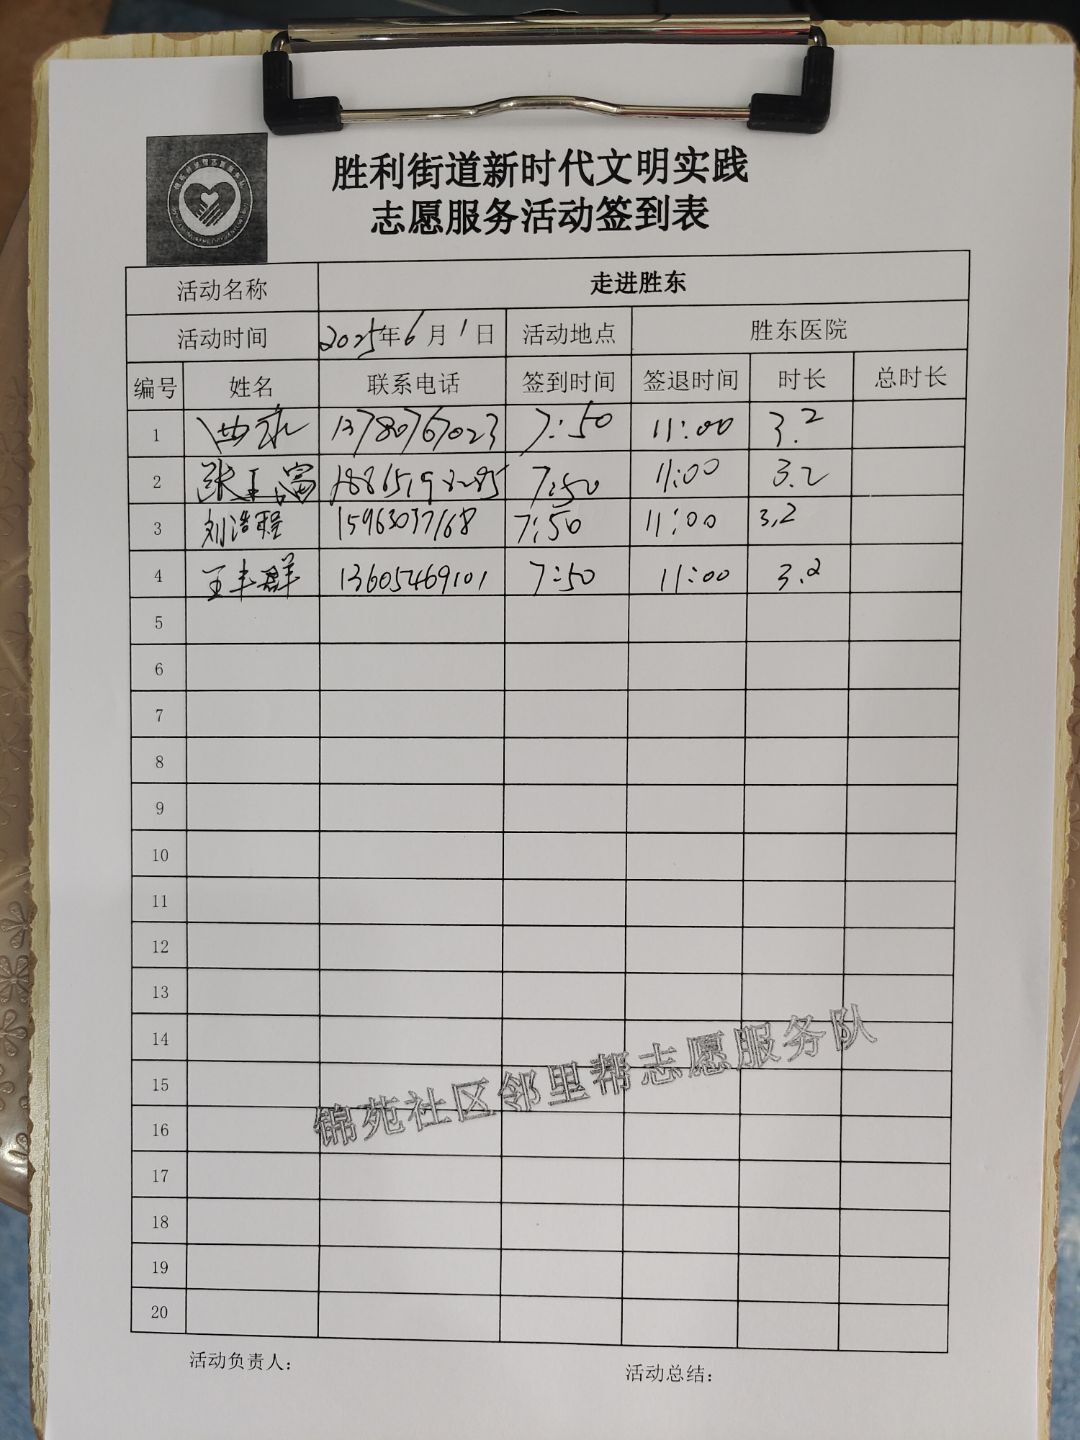 胜利街道新时代文明实践
志愿服务活动签到表
活动名称 走进胜东
活动时间 2025年6月1日 活动地点 胜东医院
编号 姓名 联系电话 签到时间 签退时间 时长 总时长
1 13780767023 7:50 11:00 3.2
2 张玉富 7:50 11:00 3.2
3 刘浩程 15963037168 7:50 11:00 3.2
4 王丰群 13605469101 7:50 11:00 3.2
5
6
7
8
9
10
11
12
13
14
15
16
17
18
19
20
锦苑社区邻里帮志愿服务队
活动负责人： 活动总结：